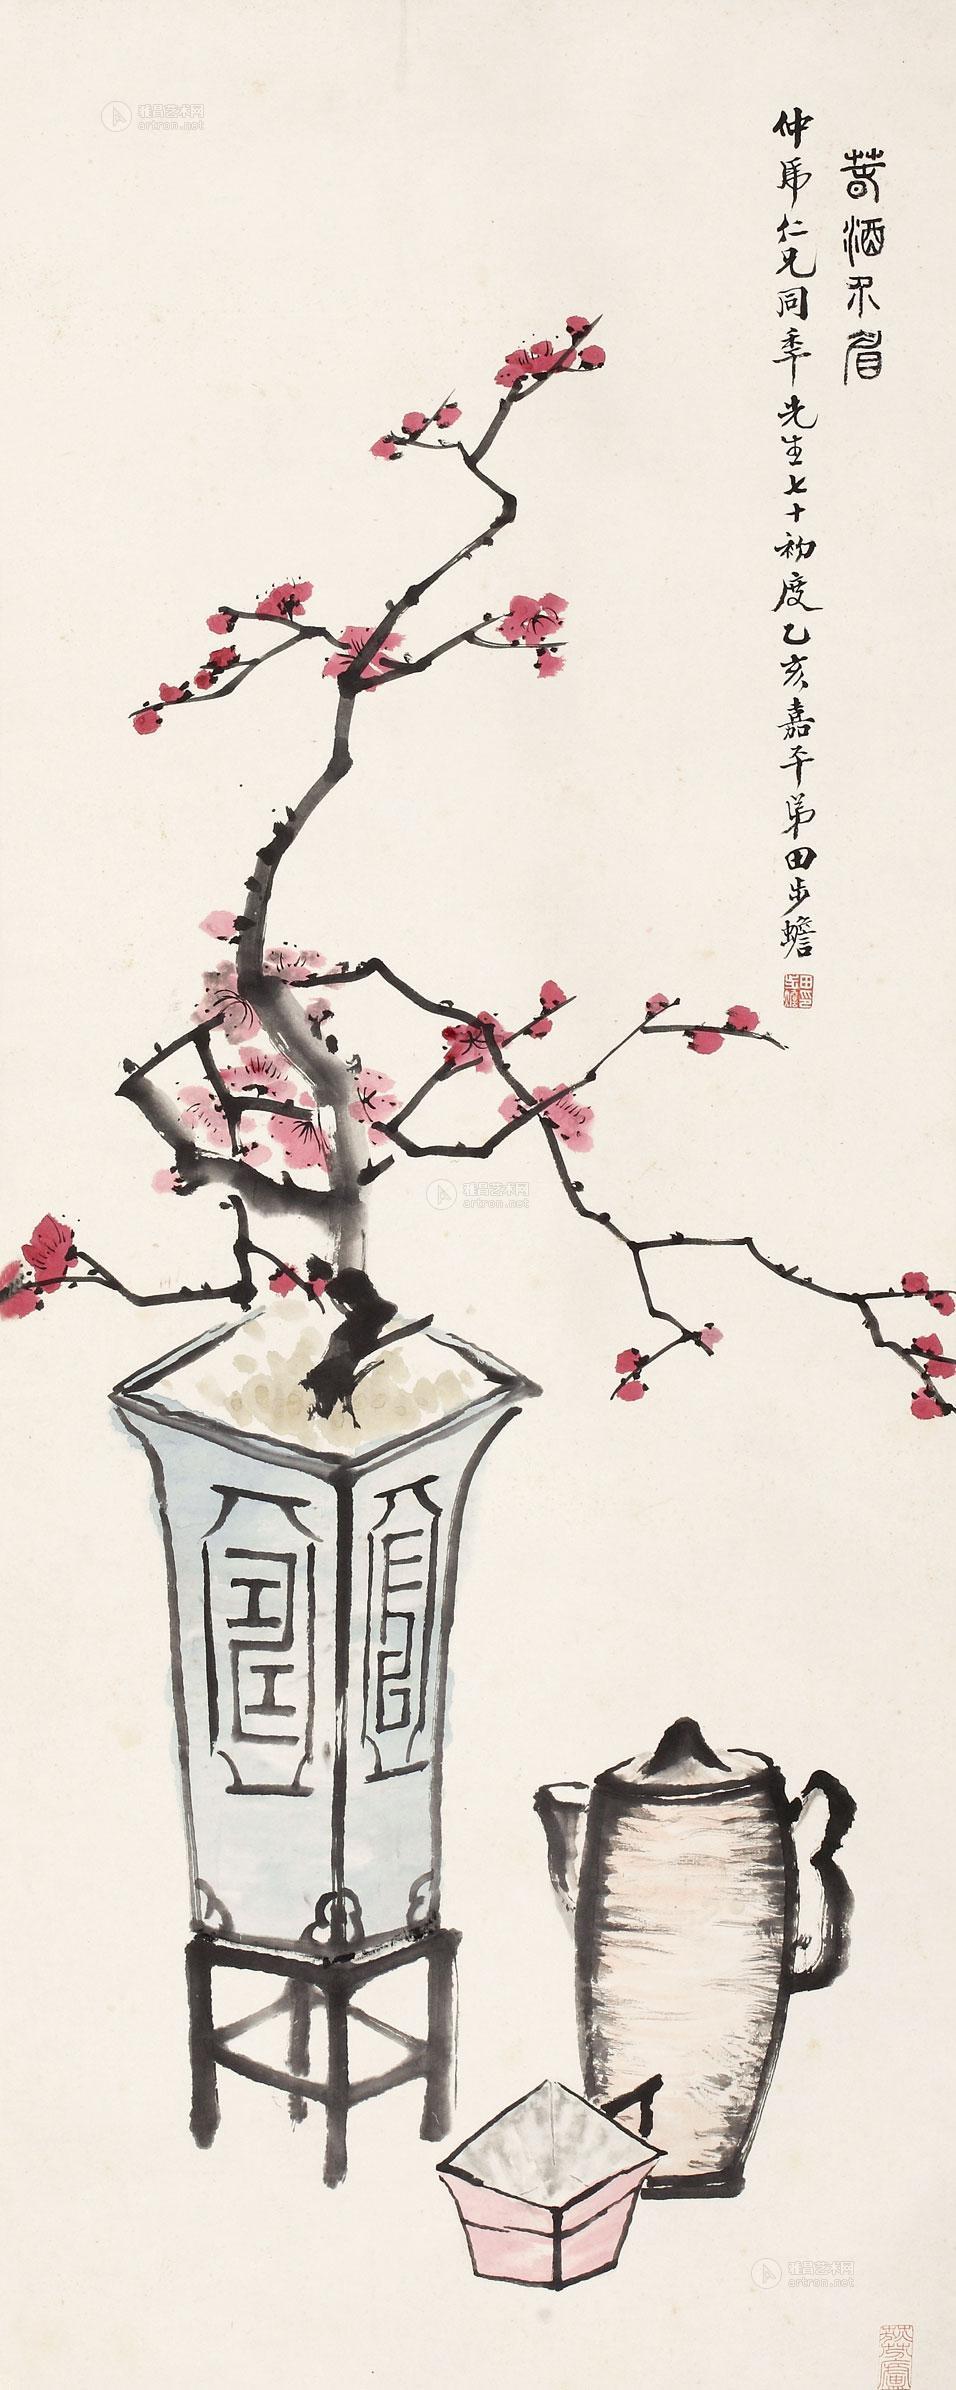 春酒介眉
仲䖍仁兄同年先生七十初度乙亥嘉平弟田步蟾
田步蟾印
雅昌艺术网
artron.net
雅昌艺术网
artron.net
雅昌艺术网
artron.net